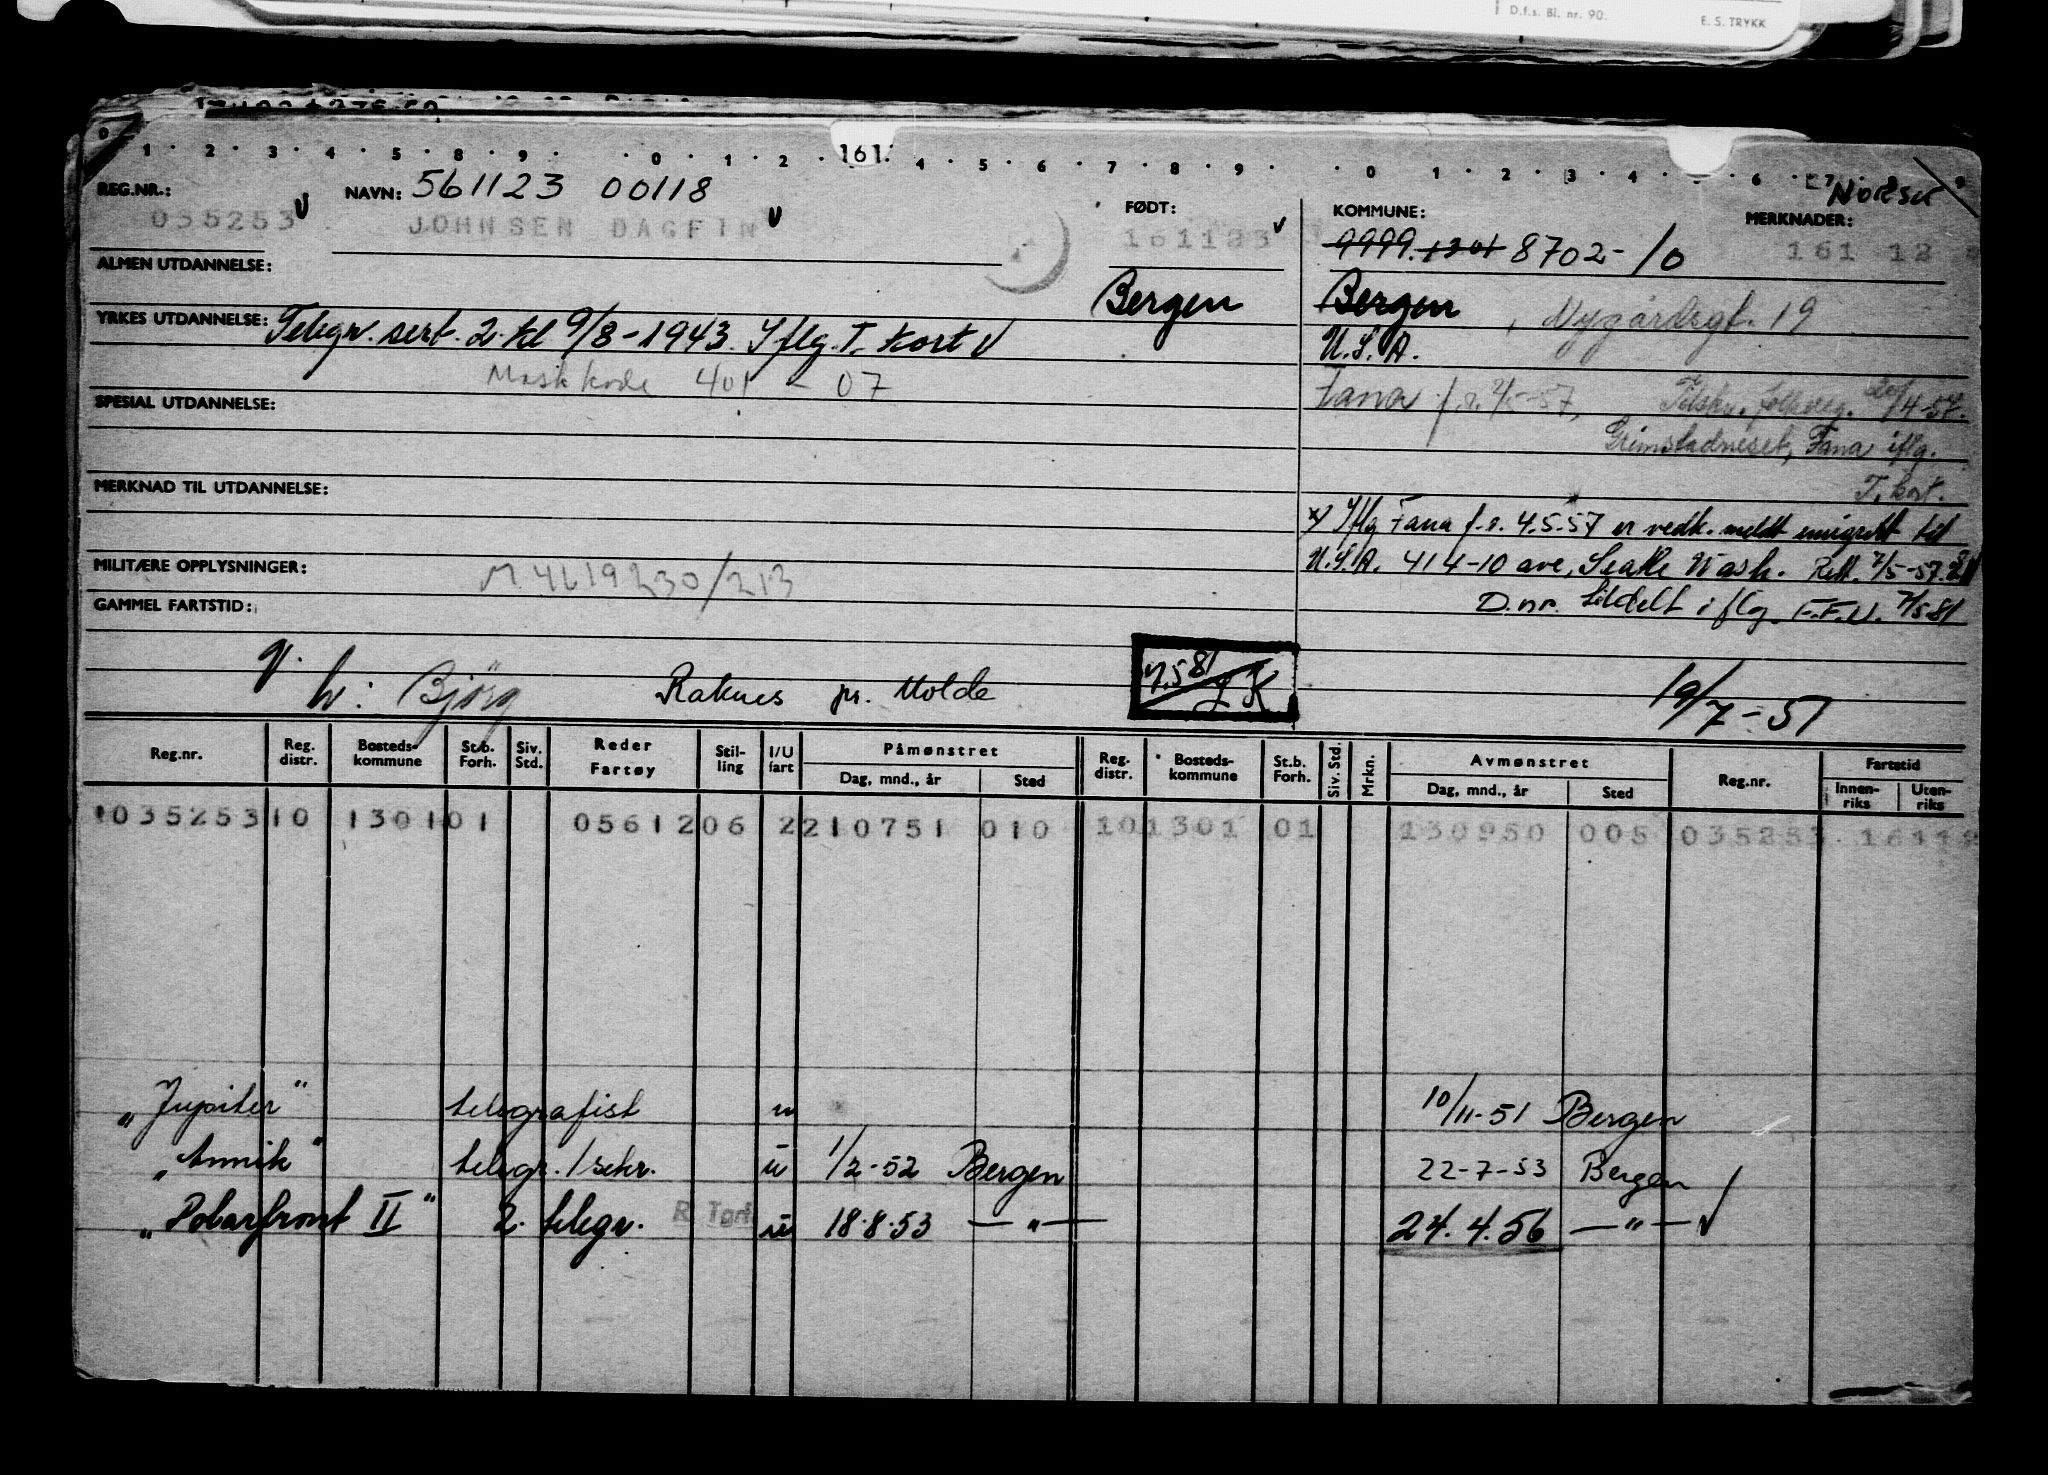 D.f.s. Bl. nr. 90. E. S. TRYKK
1 2 3 4 5 8 9 0 1 2 161. 4 5 6 7 8 9 0 1 2 3 4 6
REG.NR.: NAVN: 561123 00118 FØDT: KOMMUNE: MERKNADER: Norsk
035253 JOHNSEN DAGFIN 161123 9999 1301 8702-10 161 12
ALMEN UTDANNELSE: Bergen Bergen, Nygårdsgt. 19
YRKES UTDANNELSE: Telegr. sert. 2. kl 9/8-1943. Iflg. T. kort
U.S.A.
Maskkode 401 - 07
SPESIAL UTDANNELSE: Fana f.r. 2/5-57, Tilsky. folkereg. 20/4-57.
Grimstadneset, Fana iflg.
T. kort.
MERKNAD TIL UTDANNELSE:
x) Iflg Fana f.r. 4.5.57 er vedk. meldt emigrett til
MILITÆRE OPPLYSNINGER: M 4619230/213 U.S.A. 414-10 ave, Seatle Wash. Rett. 7/5-57.
GAMMEL FARTSTID: D.nr. tildelt iflg. F.F.U. 7/5 81
h: Bjørg Raknes pr. Molde 7.5 81 19/7-51
Reg.nr. Reg. distr. Bosteds-kommune St.b. Forh. Siv. Std. Reder Fartøy Stil-ling I/U fart Påmønstret Dag, mnd., år Sted Reg. distr. Bosteds-kommune St.b. Forh. Siv. Std. Mrkn. Avmønstret Dag, mnd., år Sted Reg.nr. Fartstid Innen-riks Uten-riks
1035253 10 1301 01 05612 06 2 210751 010 10 1301 01 130950 005 035253 1611
"Jupiter" telegrafist u 10/11-51 Bergen
"Annik" telegr./sekr. u 1/2-52 Bergen 22-7-53 Bergen
"Polarfront II" 2. telegr. u 18.8.53 —"— 24.4.56 —"—